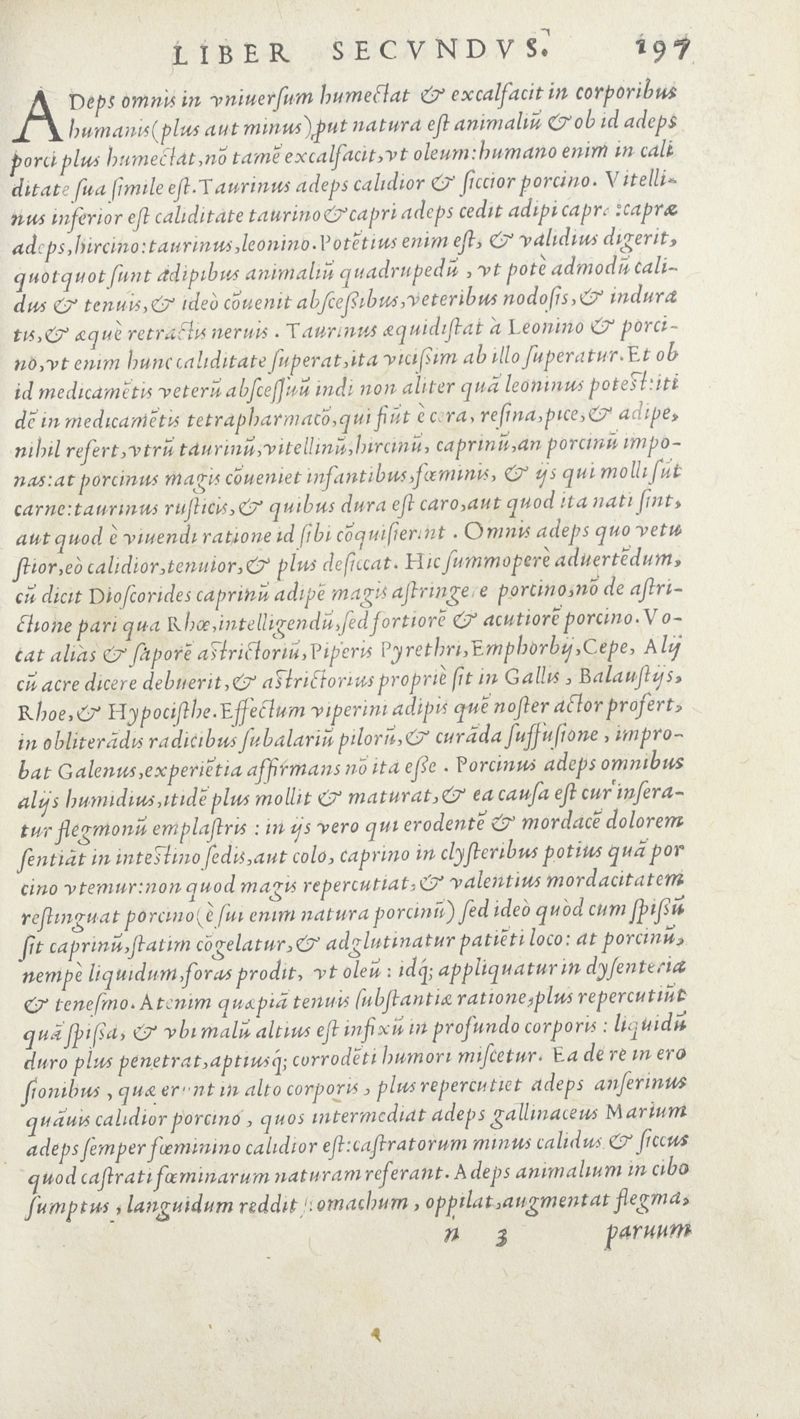 LIBER SECVNDVS. 197
ADeps omnis in vniuerſum humectat & excalfacit in corporibus
humanis(plus aut minus)put natura eſt animaliū & ob id adeps
porci plus humectat,nō tamē excalfacit,vt oleum:humano enim in cali
ditate ſua ſimile eſt.Taurinus adeps calidior & ſiccior porcino. Vitelli-
nus inferior eſt caliditate taurino & capri adeps cedit adipi capræ :capræ
adeps,hircino:taurinus,leonino.Potētius enim eſt, & validius digerit,
quotquot ſunt adipibus animaliū quadrupedū , vt potè admodū cali-
dus & tenuis,& ideò cōuenit abſceßibus,veteribus nodoſis,& indura
tis,& æquè retractis neruis . Taurinus æquidiſtat à Leonino & porci-
nō,vt enim hunc caliditate ſuperat,ita vicißim ab illo ſuperatur.Et ob
id medicamētis veterū abſceſſuū indi non aliter quā leoninus poteſt:iti
dē in medicamētis tetrapharmacō,qui fiūt è cera, reſina,pice,& adipe,
nihil refert,vtrū taurinū,vitellinū,hircinū, caprinū,an porcinū impo-
nas:at porcinus magis cōueniet infantibus,fœminis, & ijs qui molli ſūt
carne:taurinus ruſticis,& quibus dura eſt caro,aut quod ita nati ſint,
aut quod è viuendi ratione id ſibi cōquiſierint . Omnis adeps quo vetu
ſtior,eò calidior,tenuior,& plus deſiccat. Hic ſummoperè aduertēdum,
cū dicit Dioſcorides caprinū adipē magis aſtringere porcino,nō de aſtri-
ctione pari qua Rhœ,intelligendū,ſed fortiorē & acutiorē porcino.Vo-
cat aliàs & ſaporē aſtrictoriū,Piperis Pyrethri,Emphorbij,Cepe, Alij
cū acre dicere debuerit,& aſtrictorius propriè ſit in Gallis , Balauſtijs,
Rhoe,& Hypociſthe.Effectum viperini adipis quē noſter actor profert,
in obliterādis radicibus ſubalariū pilorū,& curāda ſuffuſione , impro-
bat Galenus,experiētia affirmans nō ita eſſe . Porcinus adeps omnibus
alijs humidius,itidē plus mollit & maturat,& ea cauſa eſt cur inſera-
tur flegmonū emplaſtris : in ijs vero qui erodentē & mordacē dolorem
ſentiāt in inteſtino ſedis,aut colo, caprino in clyſteribus potius quā por
cino vtemur:non quod magis repercutiat,& valentius mordacitatem
reſtinguat porcino(è ſui enim natura porcinū) ſed ideò quòd cum ſpißū
ſit caprinū,ſtatim cōgelatur,& adglutinatur patiēti loco: at porcinū,
nempè liquidum,foras prodit, vt oleū : idq; appliquatur in dyſenteria
& teneſmo. Atenim quæpiā tenuis ſubſtantiæ ratione,plus repercutiūt
quā ſpißa, & vbi malū altius eſt infixū in profundo corporis : liquidū
duro plus penetrat,aptiusq; corrodēti humori miſcetur. Ea de re in ero
ſionibus , quæ erunt in alto corporis , plus repercutiet adeps anſerinus
quāuis calidior porcino , quos intermediat adeps gallinaceus Marium
adeps ſemper fœminino calidior eſt:caſtratorum minus calidus & ſiccus
quod caſtrati fœminarum naturam referant. Adeps animalium in cibo
ſumptus , languidum reddit ſtomachum , oppilat,augmentat flegma,
n 3 paruum